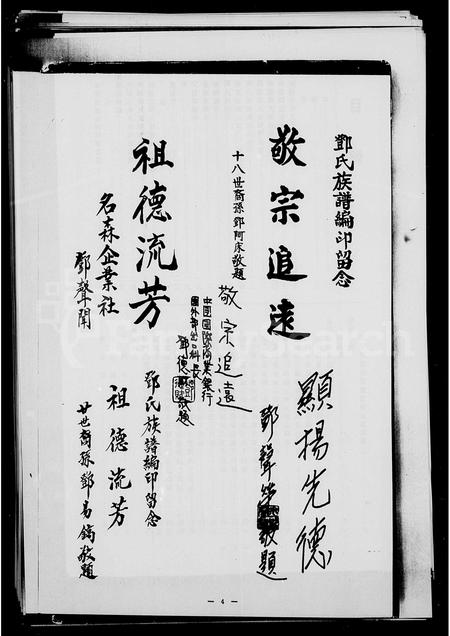 鄧氏族譜編印留念
敬宗追遠
十八世裔孫鄧阿床敬題
顯揚先德
鄧聲 敬題
敬宗追遠
中國國際商業銀行
國外部出口科長
鄧德 敬題
祖德流芳
名森企業社
鄧聲開
鄧氏族譜編印留念
祖德流芳
廿世裔孫鄧易鎬敬題
FamilySearch
— 4 —